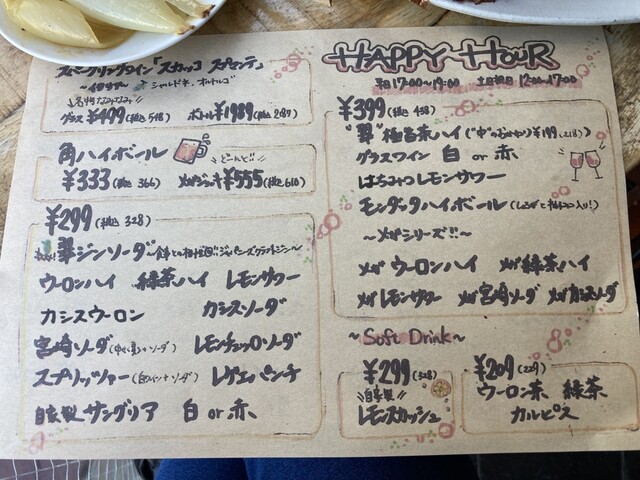 スパークリングワイン「スカッコ マッテ」
シャルドネ、オルトルゴ
名物なみなみ!!
グラス ¥499(税込 548) ボトル ¥1989(税込 2187)
角ハイボール
¥333(税込 366) メガジョッキ ¥555(税込 610)
どーんと!!
¥299(税込 328)
翠ジンソーダ
ウーロンハイ 緑茶ハイ レモンサワー
カシスウーロン カシスソーダ
宮崎ソーダ レモンチェッロソーダ
スプリッツァー(白ワイン+ソーダ) レゲエパンチ
自家製サングリア 白 or 赤
HAPPY HOUR
平日 17:00〜19:00 土日祝日 12:00〜17:00
¥399(税込 438)
"翠"極旨茶ハイ("中"のおかわり ¥199(218))
グラスワイン 白 or 赤
はちみつレモンサワー
モンダッタハイボール(しょうがと柚子入り!)
〜メガシリーズ!!〜
メガ ウーロンハイ メガ緑茶ハイ
メガレモンサワー メガ宮崎ソーダ メガカシスソーダ
〜Soft Drink〜
¥299(328)
自家製
レモンスカッシュ
¥209(229)
ウーロン茶 緑茶
カルピス